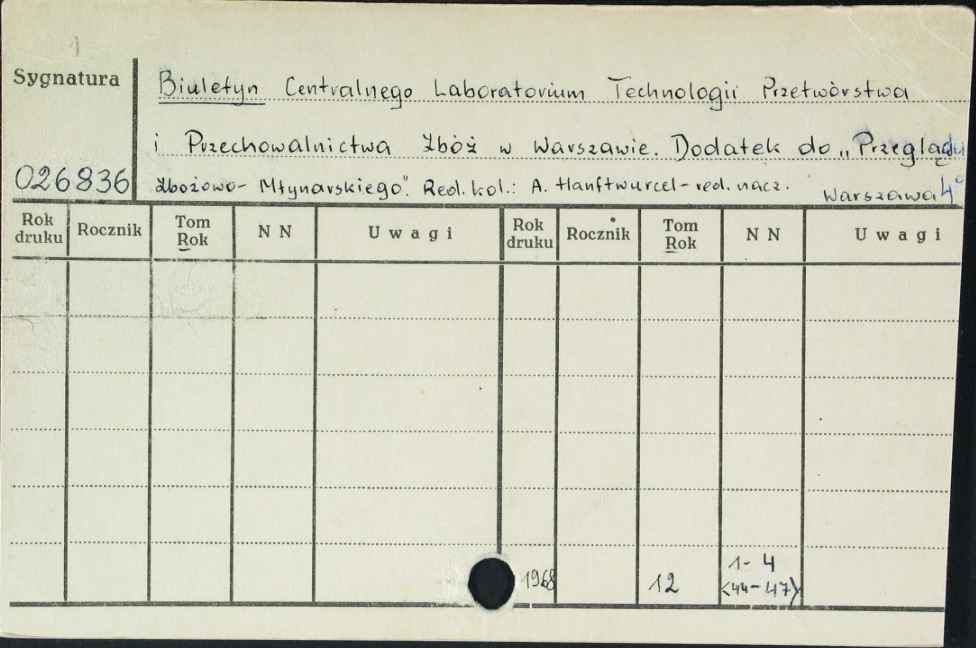 Sygnatura
Biuletyn Centralnego Laboratorium Technologii Przetwórstwa
i Przechowalnictwa Zbóż w Warszawie. Dodatek do „Przeglądu
026836
Zbożowo-Młynarskiego". Red. kol.: A. Hanftwurcel-red. nacz. Warszawa 4°
Rok druku Rocznik Tom Rok N N Uwagi Rok druku Rocznik Tom Rok N N Uwagi
1968 12 1-4
<44-47>